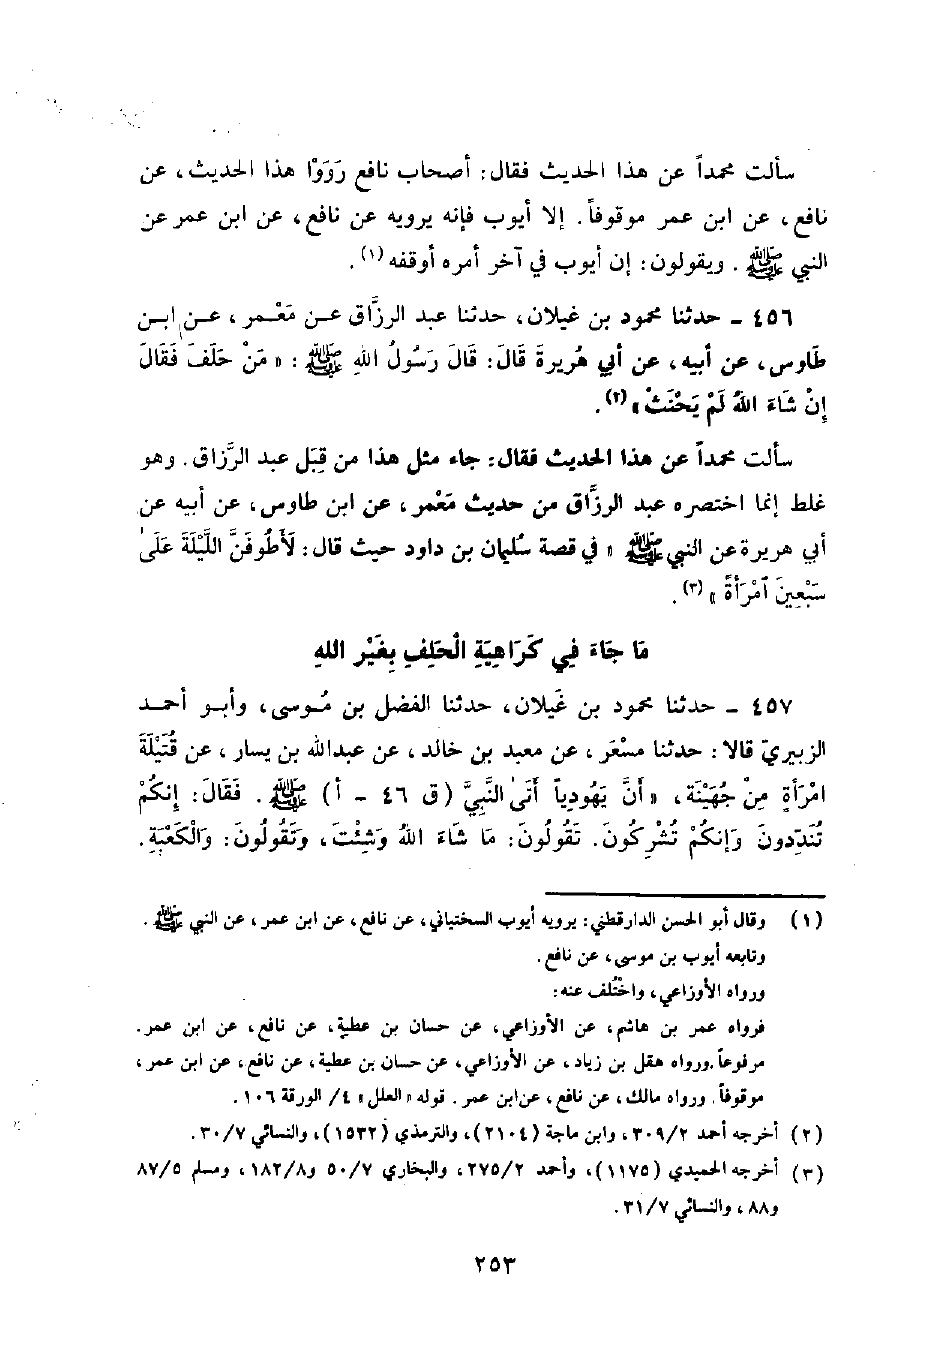 سألت محمداً عن هذا الحديث فقال: أصحاب نافع رَوَوْا هذا الحديث، عن
نافع، عن ابن عمر موقوفاً. إلا أيوب فإنه يرويه عن نافع، عن ابن عمر عن
النبي ﷺ. ويقولون: إن أيوب في آخر أمره أوقفه (١).
٤٥٦ ـ حدثنا محمود بن غيلان، حدثنا عبد الرزَّاق عن مَعْمر، عن ابن
طَاوس، عن أبيه، عن أبي هُريرةَ قَالَ: قَالَ رَسُولُ اللهِ ﷺ: « مَنْ حَلَفَ فَقَالَ
إِنْ شَاءَ اللهُ لَمْ يَحْنَثْ » (٢).
سألت محمداً عن هذا الحديث فقال: جاء مثل هذا من قِبَل عبد الرَّزاق. وهو
غلط إنما اختصره عبد الرزَّاق من حديث مَعْمر، عن ابن طاوس، عن أبيه عن
أبي هريرة عن النبي ﷺ « في قصة سُليمان بن داود حيث قال: لَأَطُوفَنَّ اللَّيْلَةَ عَلَىٰ
سَبْعِينَ آمْرَأةً » (٣).
مَا جَاءَ فِي كَرَاهِيَةِ الْحَلِفِ بِغَيْرِ اللهِ
٤٥٧ ـ حدثنا محمود بن غَيلان، حدثنا الفضل بن مُوسى، وأبو أحمد
الزبيريّ قالا: حدثنا مسْعَر، عن معبد بن خالد، عن عبدالله بن يسار، عن قُتَيْلَةَ
امْرَأةٍ مِنْ جُهَيْنَة، « أنَّ يَهُودياً أتَىٰ النَّبِيَّ (ق ٤٦ ـ أ) ﷺ. فَقَالَ: إِنكُمْ
تُنَدّدونَ وَإنكُمْ تُشْرِكُونَ. تَقُولُونَ: مَا شَاءَ اللهُ وَشِئْتَ، وَتَقُولُونَ: وَالْكَعْبَةِ.
(١) وقال أبو الحسن الدارقطني: يرويه أيوب السختياني، عن نافع، عن ابن عمر، عن النبي ﷺ.
وتابعه أيوب بن موسى، عن نافع.
ورواه الأوزاعي، واختُلف عنه:
فرواه عمر بن هاشم، عن الأوزاعي، عن حسان بن عطية، عن نافع، عن ابن عمر.
مرفوعاً.ورواه هقل بن زياد، عن الأوزاعي، عن حسان بن عطية، عن نافع، عن ابن عمر،
موقوفاً. ورواه مالك، عن نافع، عن ابن عمر. قوله « العلل » ٤/ الورقة ١٠٦.
(٢) أخرجه أحمد ٣٠٩/٢، وابن ماجة (٢١٠٤)، والترمذي (١٥٣٢)، والنسائي ٣٠/٧.
(٣) أخرجه الحميدي (١١٧٥)، وأحمد ٢٧٥/٢، والبخاري ٥٠/٧ و١٨٢/٨، ومسلم ٨٧/٥
و٨٨، والنسائي ٣١/٧.
٢٥٣